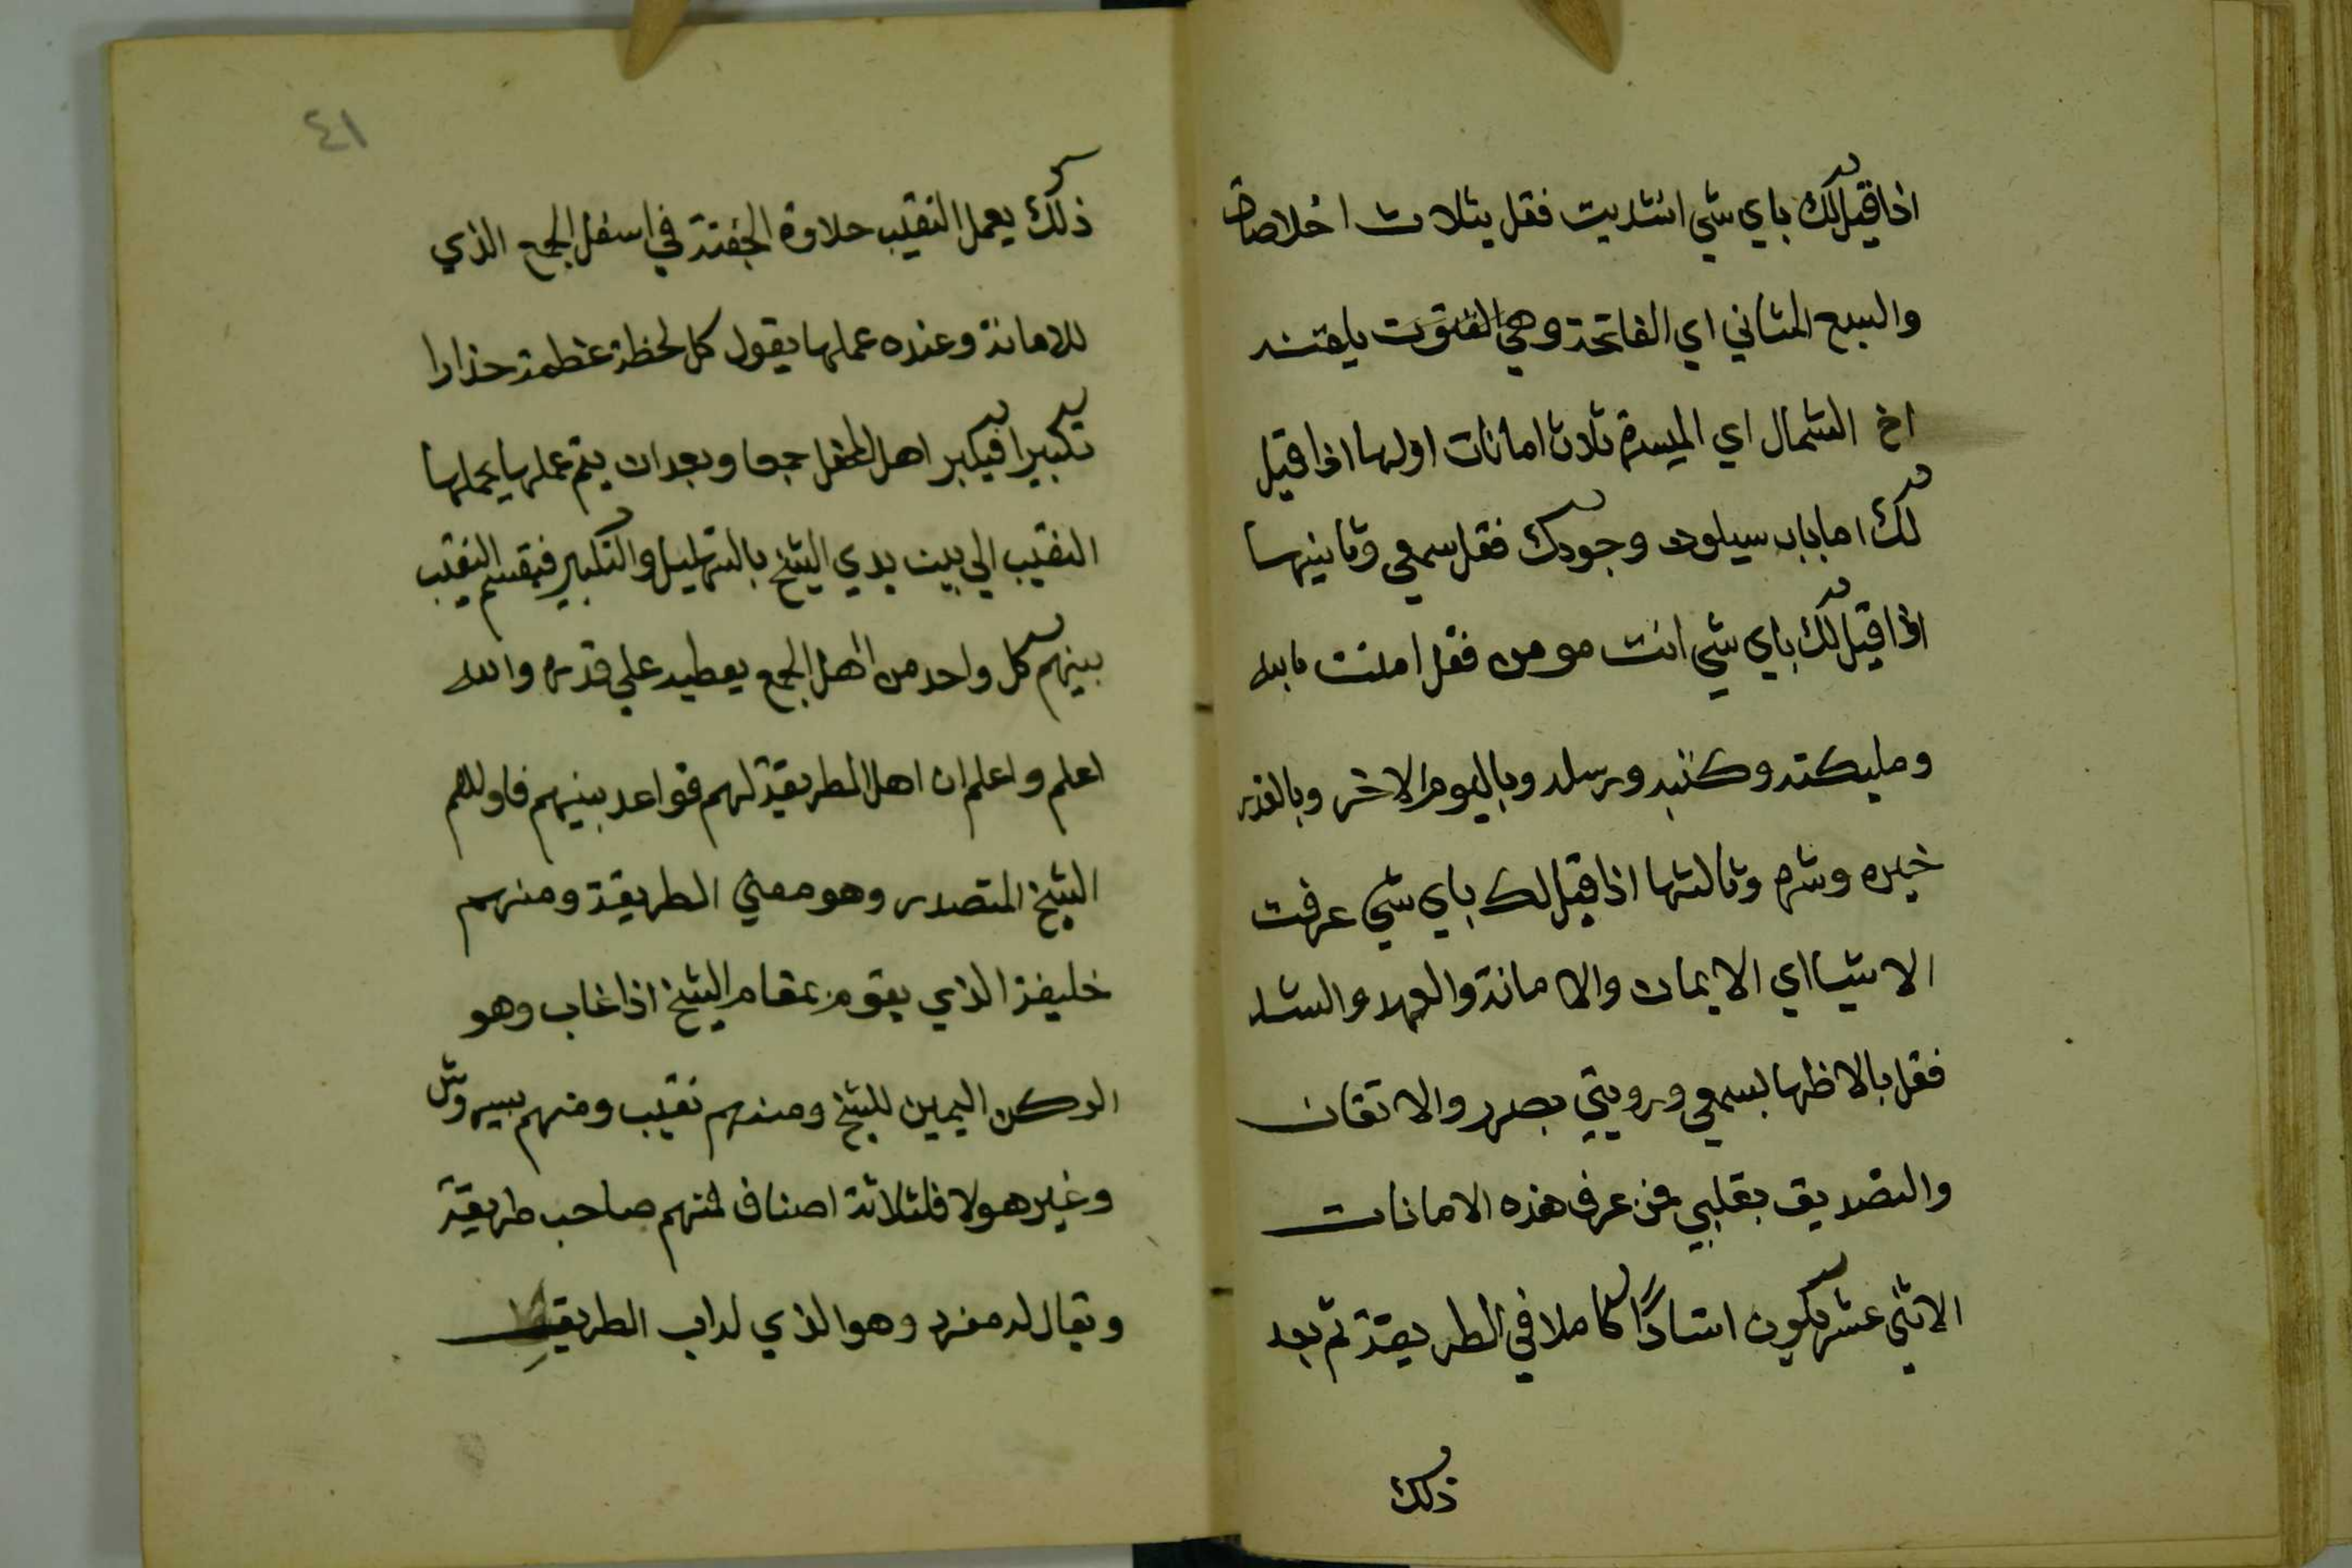 اذا قيل لك باي شي انشديت فقل بثلاث اخلاصات
والسبع المثاني اي الفاتحة وهي القنوت يلقنه
اخ الشمال اي الميسرة ثلاث امانات اولها اذا قيل
لك اما باب سيلون وجودك فقل سمعي وثانيها
اذا قيل لك باي شي انت مومن فقل امنت بالله
ومليكته وكتبه ورسله وباليوم الاخر وبالقدر
خيره وشره وثالثها اذا قيل لك باي شي عرفت
الاشيا اي الايمان والامانة والعهد والشد
فقل بالاظها لسمعي ورويتي بصرر والاتقان
والتصديق بقلبي فمن عرف هذه الامانات
الاثني عشر فيكون استادًا كاملا في الطريقة ثم بعد
ذلك
٤١
ذلك يعمل النقيب حلاوة الجفنة في اسفل الجمع الذي
للامانة وعنده عملها يقول كل لحظة عظمة حذارا
تكبيرا فيكبر اهل المحفل جمعا وبعد ان يتم عملها يحملها
النقيب الي بين يدي الشيخ بالتهليل والتكبير فيقسم النقيب
بينهم كل واحد من اهل الجمع يعطيه علي قدره والله
اعلم واعلم ان اهل الطريقة لهم قواعد بينهم فاولهم
الشيخ المتصدر وهو معني الطريقة ومنهم
خليفة الذي يقوم بمقام الشيخ اذا غاب وهو
الركن اليمين للشيخ ومنهم نقيب ومنهم بيروش
وغير هولا فلثلاثة اصناف فمنهم صاحب طريقة
ويقال له مفرد وهو الذي له اب الطريق